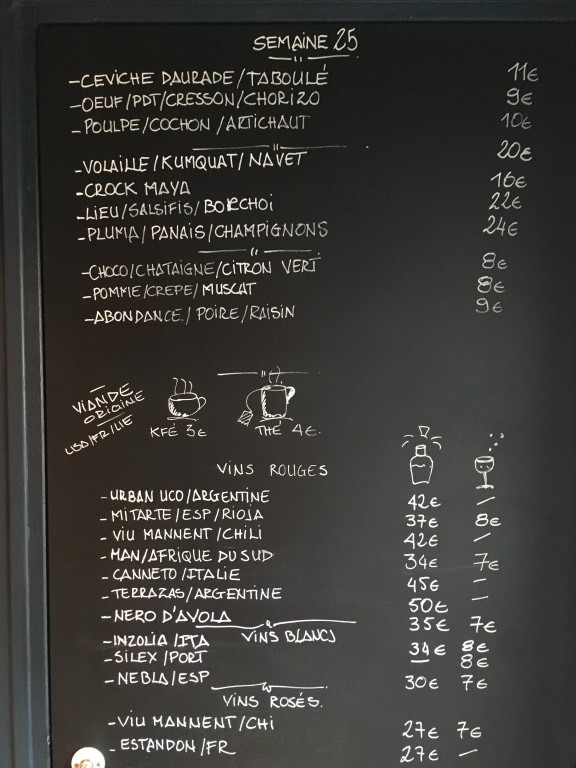 SEMAINE 25
-CEVICHE DAURADE/TABOULÉ 11€
-OEUF/PDT/CRESSON/CHORIZO 9€
-POULPE/COCHON/ARTICHAUT 10€
-VOLAILLE/KUMQUAT/NAVET 20€
-CROCK MAYA 16€
-LIEU/SALSIFIS/BORCHOI 22€
-PLUMA/PANAIS/CHAMPIGNONS 24€
-CHOCO/CHATAIGNE/CITRON VERT 8€
-POMME/CREPE/MUSCAT 8€
-ABONDANCE/POIRE/RAISIN 9€
VIANDE
ORIGINE
KFÉ 3€ THÉ 4€.
VINS ROUGES
-URBAN UCO/ARGENTINE 42€ -
-MITARTE/ESP/RIOJA 37€ 8€
-VIU MANNENT/CHILI 42€ -
-MAN/AFRIQUE DU SUD 34€ 7€
-CANNETO/ITALIE 45€ -
-TERRAZAS/ARGENTINE 50€ -
-NERO D'AVOLA 35€ 7€
VINS BLANCS
-INZOLIA/ITA 34€ 8€
-SILEX/PORT - 8€
-NEBLA/ESP 30€ 7€
VINS ROSÉS.
-VIU MANNENT/CHI 27€ 7€
-ESTANDON/FR 27€ -